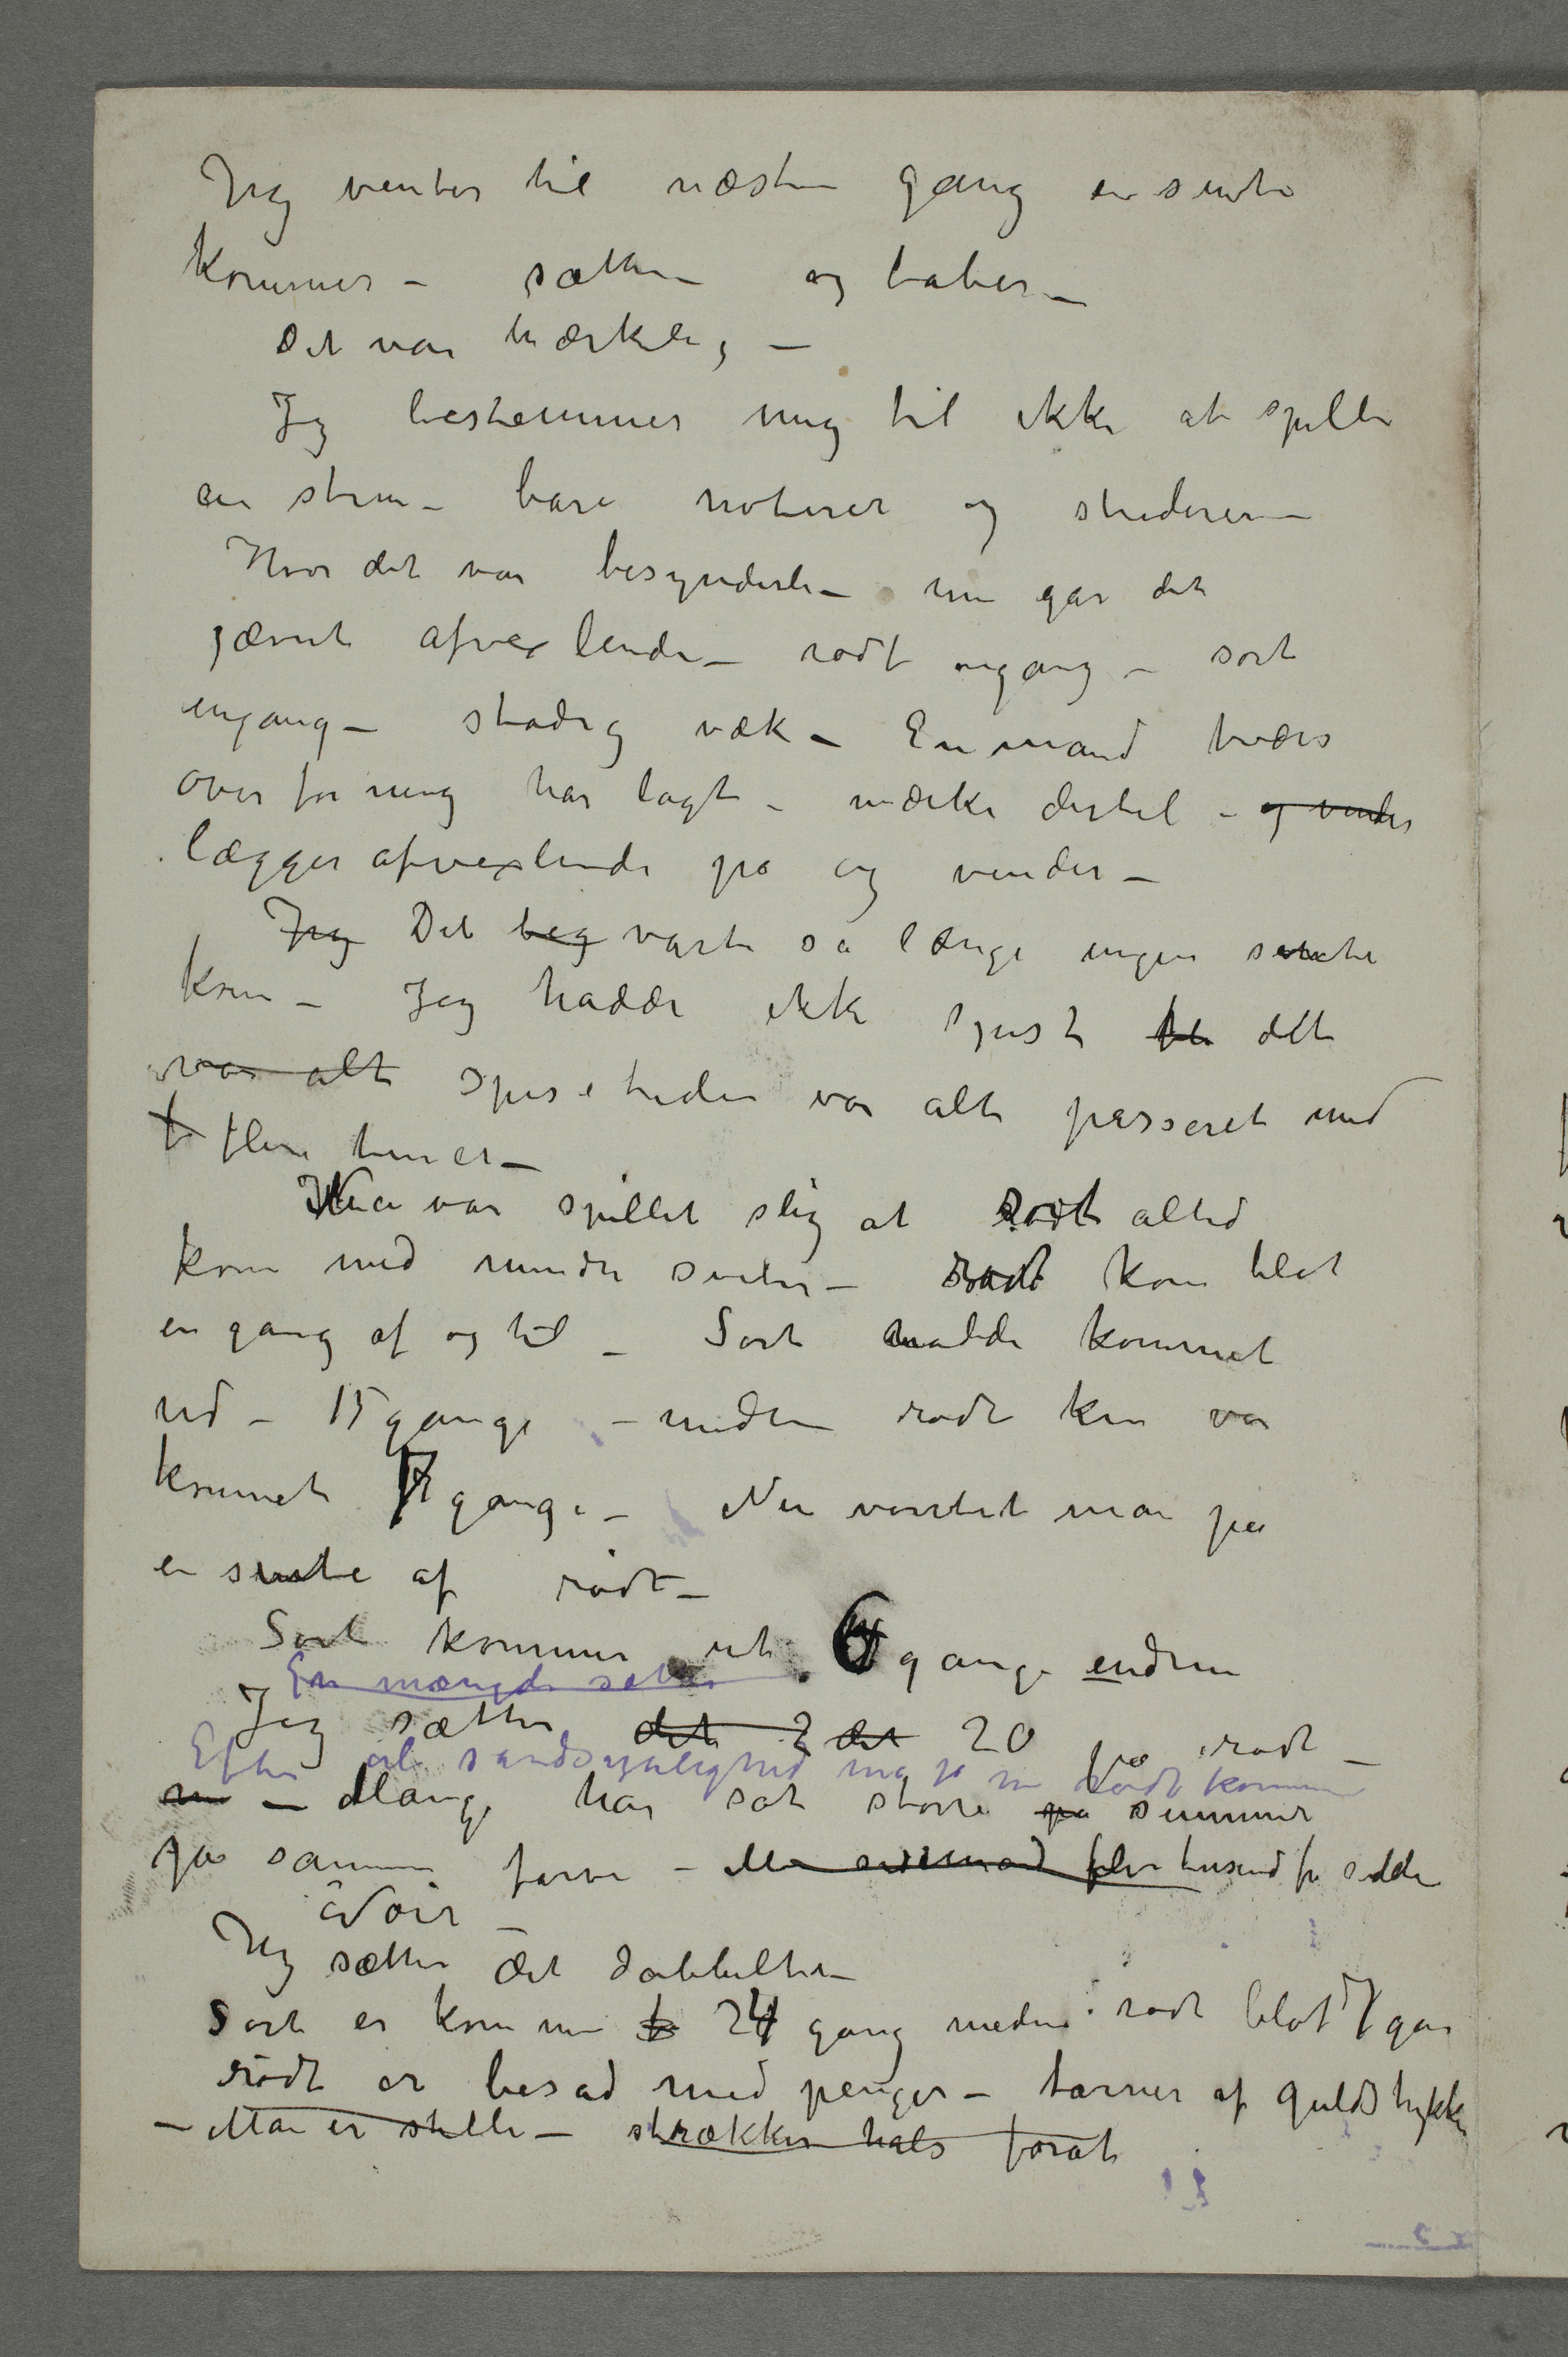 Jeg venter til næste gang en suite
kommer – sætter og taber –
Det var mærkelig –
Jeg bestemmer mig til ikke at spille
en stun – bare noterer og studerer –
Hvor det var besynderli – nu går det
jævnt afvexlende – rødt engang – sort
engang – stadig væk – En mand tværs
over for mig har lagt – mærke dertil – og vinder
lægger afvexlende på og vinder –
Jeg Det beg varte så længe ingen suite
kom – Jeg hadde ikke spist det
var alt spisetiden var alt passeret med
f flere timer –
Nu var spillet slig at sort altid
kom med mindre suiter – rødt kom blot
en gang af og til – Sort hadde kommet
ud – 15 gange – meden rødt kun var
kommet 7 gange – Nu ventet man på
en suite af rødt –
Sort kommer ut 6 gange endnu
En mængde sætter
Jeg sætter det 2 det 20 på rødt –
Efter al sandsynlighed må jo nu rødt komme
nu – Mange har sat større på summer
på samme farve – Min sidemand flere tusend fr
Noir –
Jeg sætter det dobbelte –
Sort er kommen 24 gang meden rødt blot 7 gan
rødt er besad med penger – tarner af guldstykke
– Man er stille – strækker hals forat